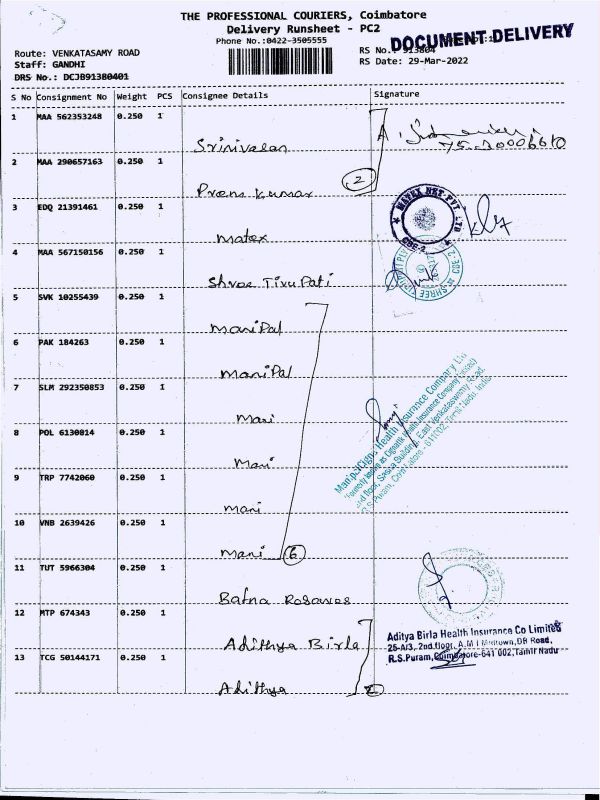 THE PROFESSIONAL COURIERS, Coimbatore
Delivery Runsheet - PC2
Phone No.:0422-3505555
DOCUMENT DELIVERY
Route: VENKATASAMY ROAD
Staff: GANDHI
DRS No.: DCJB91380401
RS No.: 913804
RS Date: 29-Mar-2022
S No Consignment No Weight PCS Consignee Details Signature
1 MAA 562353248 0.250 1
Srinivasan
2 MAA 290657163 0.250 1
Prem Kumar 2
3 EDQ 21391461 0.250 1
Matex
MATEX NET PVT LTD
CBE-2
4 MAA 567150156 0.250 1
Shree Tirupati
5 SVK 10255439 0.250 1
ManiPal
6 PAK 184263 0.250 1
ManiPal
7 SLM 292350853 0.250 1
Mani
8 POL 6130814 0.250 1
Mani
9 TRP 7742060 0.250 1
Mani
10 VNB 2639426 0.250 1
Mani 6
ManipalCigna Health Insurance Company Ltd
2nd floor, Building, East Venkataswamy Road,
R.S Puram, Coimbatore - 641002, Tamil Nadu, India
11 TUT 5966304 0.250 1
12 MTP 674343 0.250 1
Adithya Birla
13 TCG 50144171 0.250 1
Adithya 2
Aditya Birla Health Insurance Co Limited
25-A/3, 2nd floor, A.M.I Midtown, DB Road,
R.S.Puram, Coimbatore-641 002, Tamil Nadu